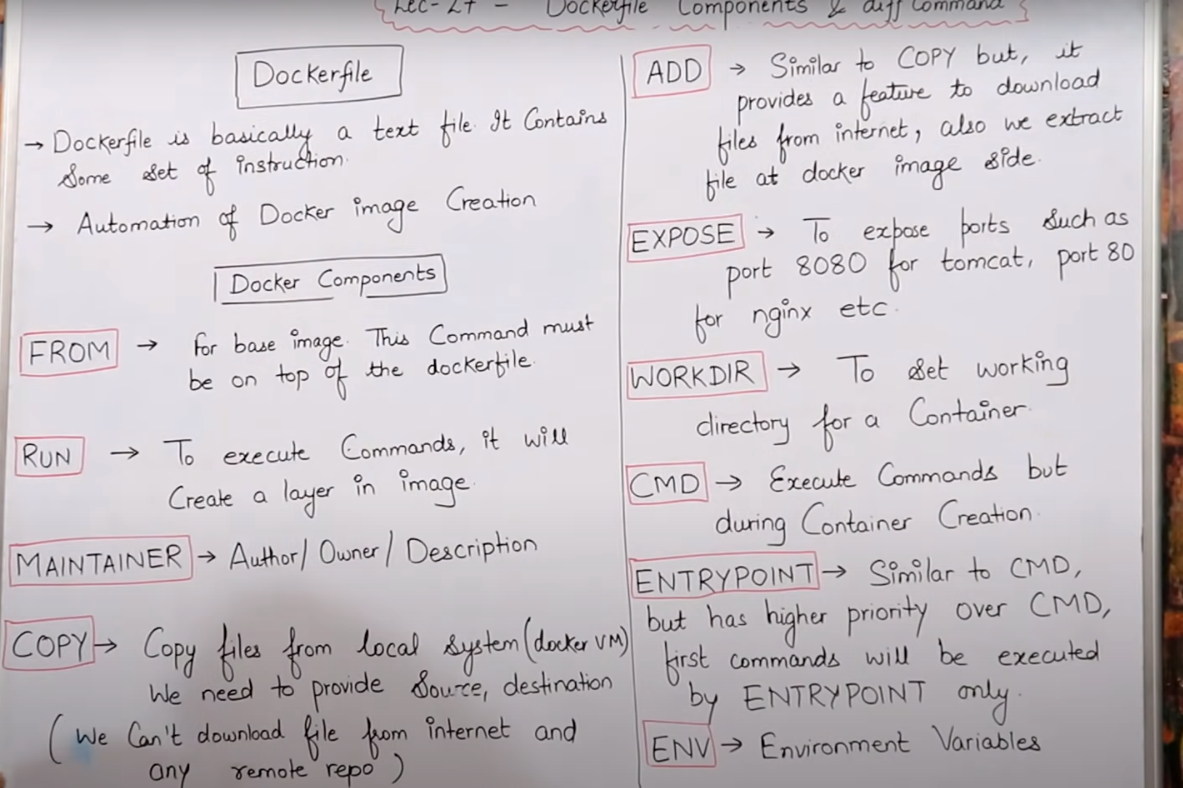 Lec-27 - Dockerfile Components & diff Command
Dockerfile
→ Dockerfile is basically a text file. It Contains
Some set of instruction.
→ Automation of Docker image Creation
Docker Components
FROM → for base image. This Command must
be on top of the dockerfile.
RUN → To execute Commands, it will
Create a layer in image.
MAINTAINER → Author/Owner/Description
COPY → Copy files from local system (docker VM)
We need to provide Source, destination
(We Can't download file from internet and
any remote repo)
ADD → Similar to COPY but, it
provides a feature to download
files from internet, also we extract
file at docker image side.
EXPOSE → To expose ports such as
port 8080 for tomcat, port 80
for nginx etc.
WORKDIR → To set working
directory for a Container.
CMD → Execute Commands but
during Container Creation.
ENTRYPOINT → Similar to CMD,
but has higher priority over CMD,
first commands will be executed
by ENTRYPOINT only.
ENV → Environment Variables